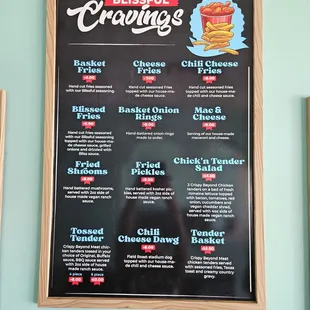 BLISSFUL
Cravings
Basket
Fries
Hand cut fries seasoned
with our Blissful seasoning
Cheese
Fries
Hand cut fries seasoned
topped with our house-ma
de cheese sauce
Chili Cheese
Fries
Hand cut fries seasoned
topped with our house-ma
de chili and cheese sauce.
Blissed
Fries
Hand cut fries seasoned
topped with our house-ma
de cheese sauce, grilled
onions and drizzled with
Bliss sauce.
Basket Onion
Rings
Hand battered onion rings
made to order.
Mac &
Cheese
Serving of our house-made
macaroni and cheese.
Fried
Shrooms
Hand battered mushrooms,
served with 2oz side of
house made vegan ranch
sauce.
Fried
Pickles
Hand battered kosher pic-
kles, served with 2oz side
of house made vegan ranch
sauce.
Chick'n Tender
Salad
3 Crispy Beyond Chicken
tenders on a bed of fresh
romaine lettuce topped
with bacon, tomatoes, red
onion, cucumbers and
vegan cheddar shred,
served with 4oz side of
house made vegan ranch
sauce.
Tossed
Tender
Crispy Beyond Meat chic
ken tenders tossed in your
choice of Original, Buffalo
sauce, BBQ sauce served
with 2oz side of house
made ranch sauce.
4 piece 6 piece
Chili
Cheese Dawg
Field Roast stadium dog
topped with our house-ma
de chili and cheese sauce.
Tender
Basket
Crispy Beyond Meat
chicken tenders served
with seasoned fries, Texas
toast and creamy country
gravy.